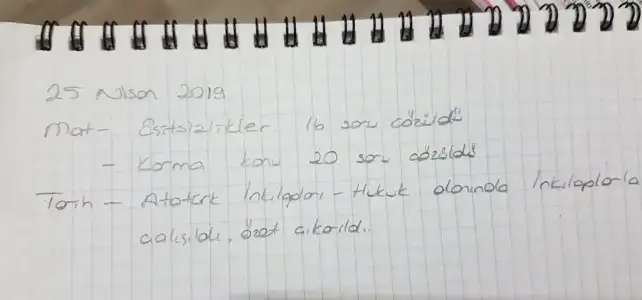 25 Nisan 2019
Mat - Eşitsizlikler 16 soru çözüldü
- Karma konu 20 soru çözüldü
Tarih - Atatürk İnkılapları - Hukuk alanında İnkılaplarla
çalışıldı, özet çıkarıldı.